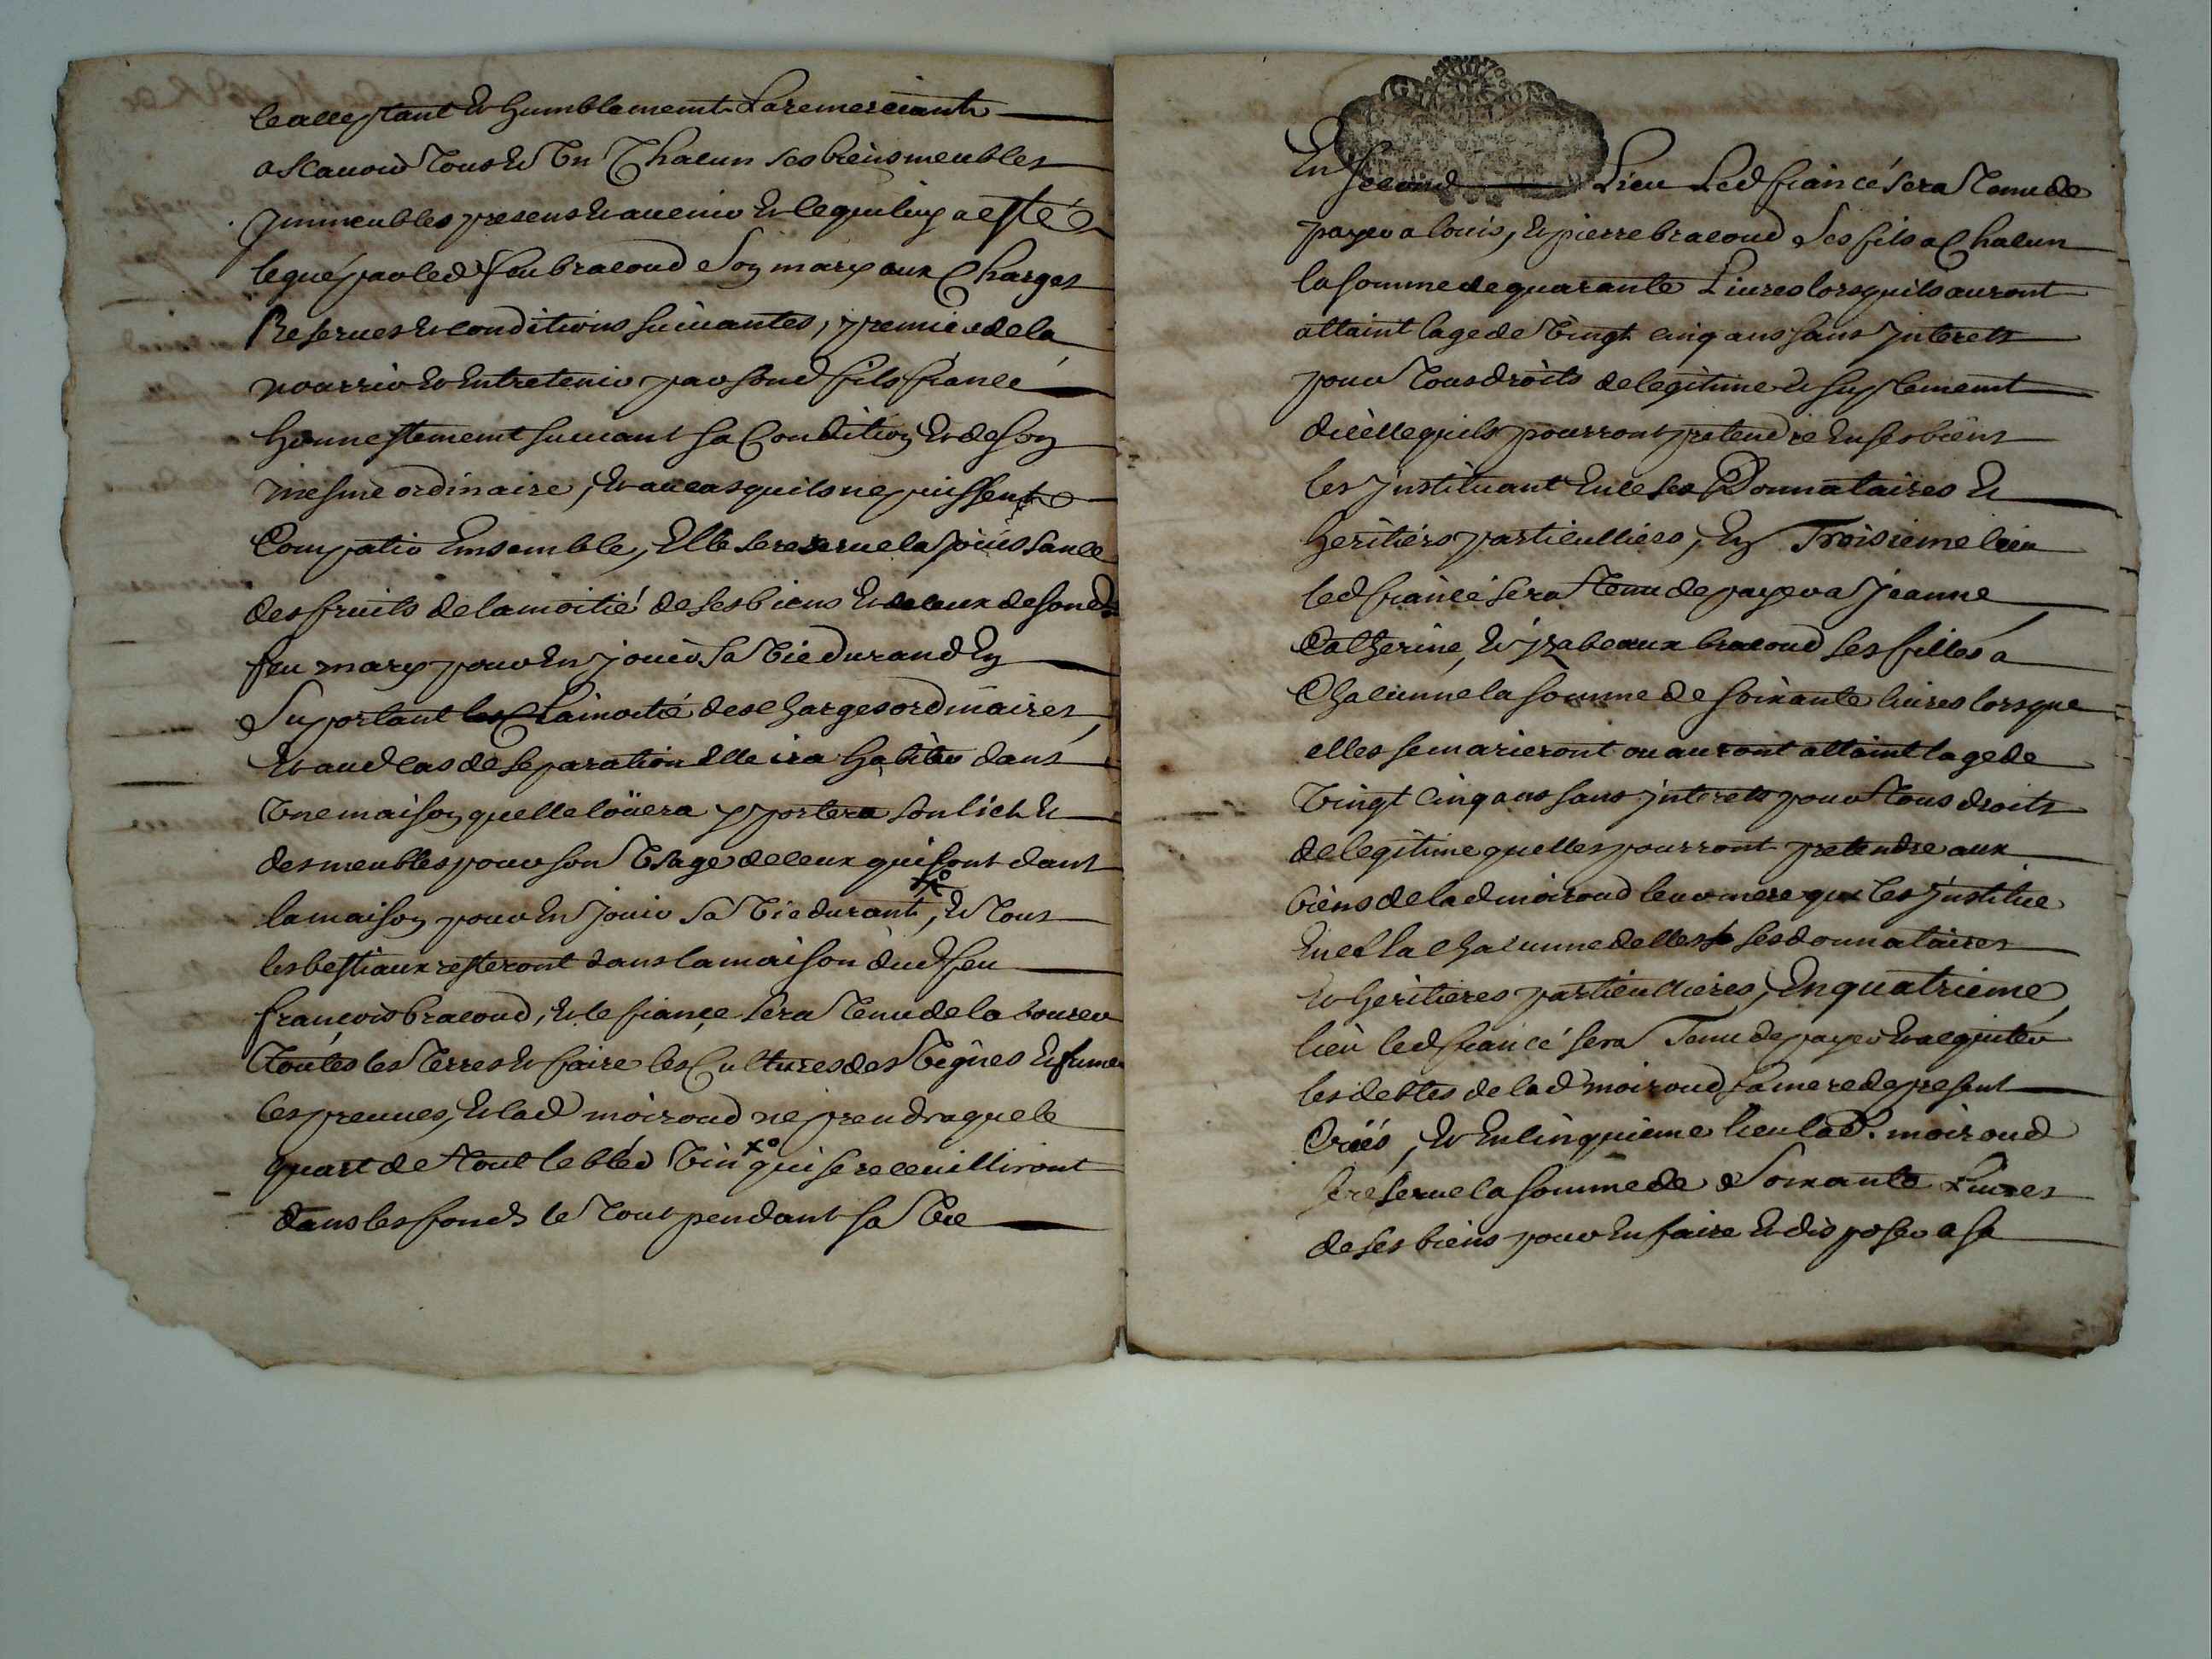 le acceptant & humblement La remerciant
a scavoir Tous & Un Chacun ses biens meubles
jmmeubles presens & avenir & ce qui luy a esté
legué par led feu bracoud Son mary aux Charges
Reserves & conditions suivantes, premier de la
nourrir & Entretenir par sond fils fiancé
honnestement suivant sa Condition & de son
mesme ordinaire, & au cas quils ne puissent
Compatir Ensemble, Elle se reserve la jouissance
des fruits de la moitié de ses biens & de ceux de sond
feu mary pour En jouir sa Vie durand En
Suportant La moitié des charges ordinaires,
& aud cas de separation Elle ira habiter dans
Une maison quelle loüera y portera son lict &
des meubles pour son Usage de ceux qui sont dans
la maison pour En jouir sa Vie durant, & Tous
les bestiaux resteront dans la maison dud feu
françois bracoud, & le fiançe sera Tenu de labourer
Toutes les Terres & faire les Cultures des Vignes & fumer
les preuues, & lad moiroud ne prendra que le
quart de Tout le bled Vin xo qui se receuilliront
dans les fonds le Tout pendant sa Vie
En Second Lieu Led fiancé sera Tenu de
payer a louis, & pierre bracoud Ses fils a Chacun
la somme de quarante Livres lorsquils auront
attaint lage de Vingt cinq ans sans jnterets
pour Tous droits de legitime & suplement
dicelle quils pourront pretendre En ses biens
les jnstituant En ce ses Donnataires &
heritiers particulliers, En Troisieme lieu
led fiancé sera Tenu de payer a Jeanne
Catherine, & jzabeaux bracoud ses filles a
Chacunne la somme de soixante livres lorsque
elles se marieront ou auront attaint lage de
Vingt Cinq ans sans jnterets pour Tous droits
de legitime quelles pourront pretendre aux
biens de lad moiroud leur mere qui les jnstitue
En cella chacunne delles ses donnataires
& heritieres particullieres, En quatrieme
lieu led fiancé sera Tenu de payer & acquiter
les debtes de lad moiroud sa mere de present
Créés, & En cinquieme lieu lad. moiroud
se reserve la somme de Soixante Livres
de ses biens pour En faire & disposer a sa